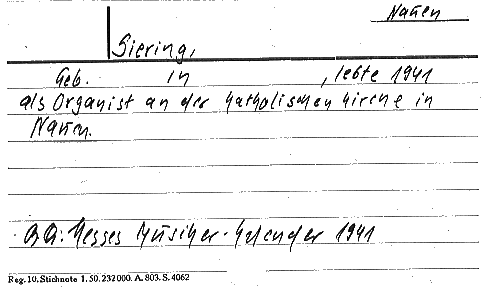 Nauen
Siering,
Geb. in , lebte 1941
als Organist an der katholischen Kirche in
Nauen.
Hesses Musiker-Kalender 1941
Reg. 10. Stichnote 1. 50. 232000. A. 803. S. 4062